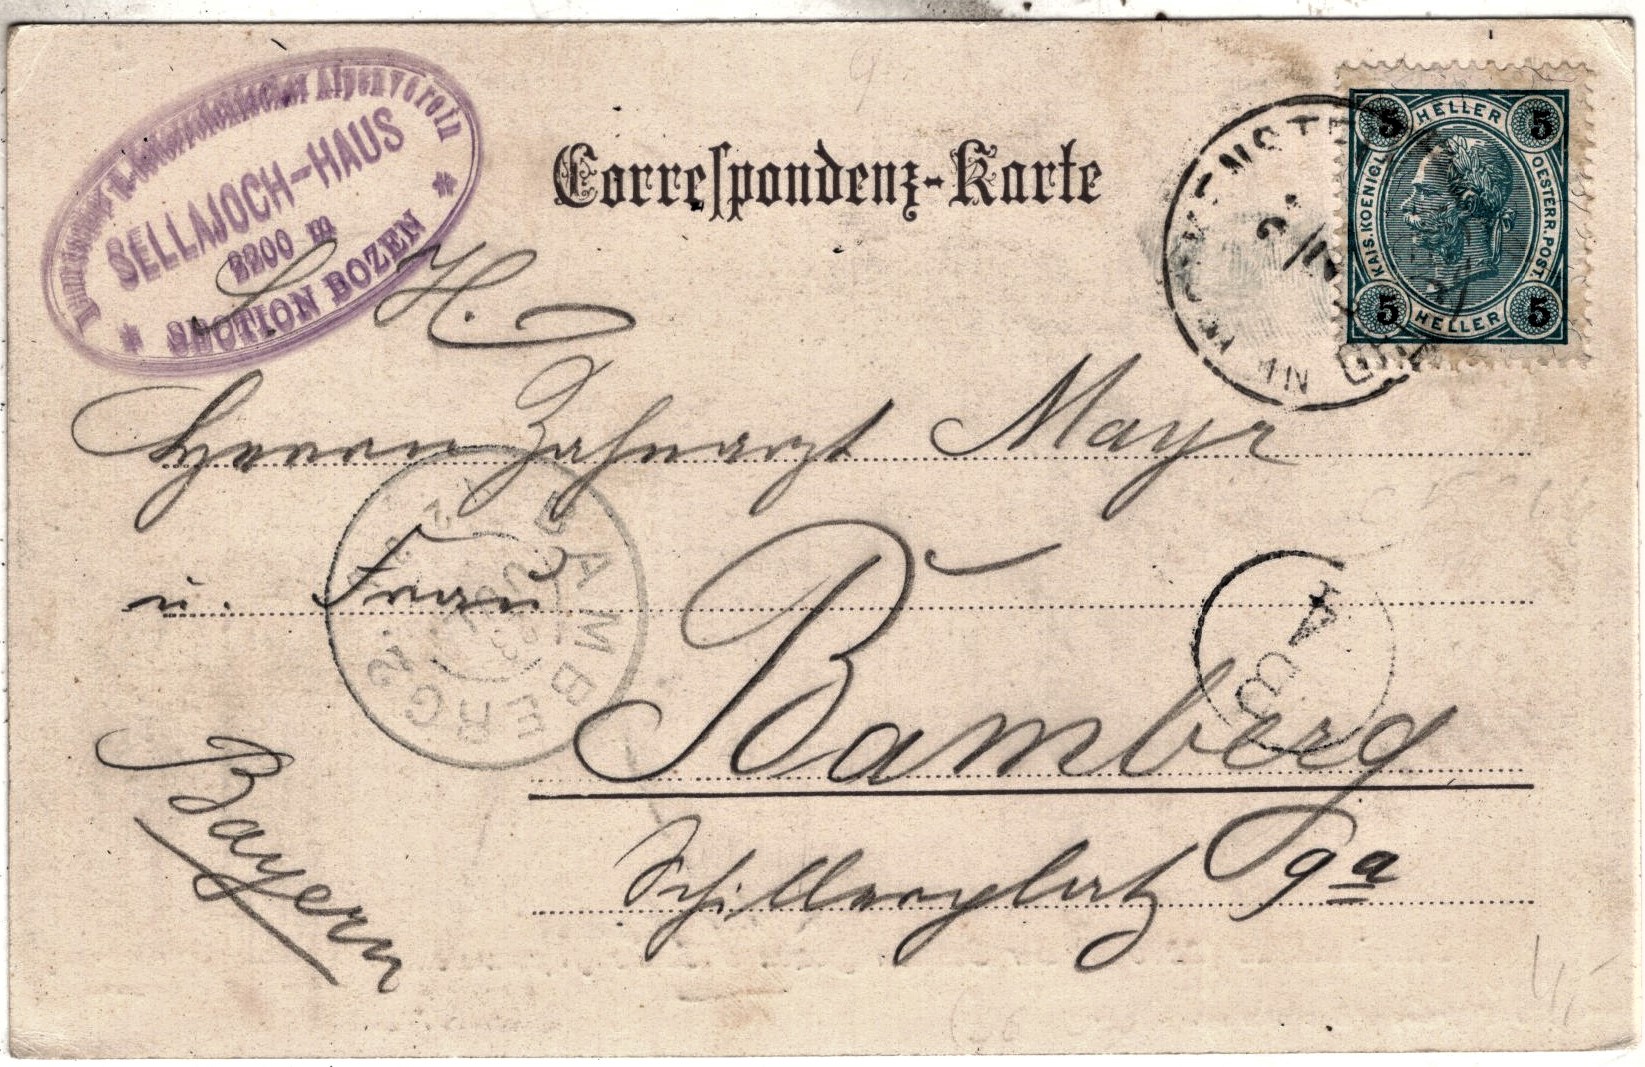 Deutscher u. Oesterreichischer Alpenverein
SELLAJOCH-HAUS
2200 m
SECTION BOZEN
Correspondenz-Karte
5 HELLER 5
KAIS. KOENIGL. OESTERR. POST.
5 HELLER 5
S. H.
Herrn Zahnarzt Mayr
u. Frau
BAMBERG 2.
Bamberg
Bayern
Schillerplatz 9a